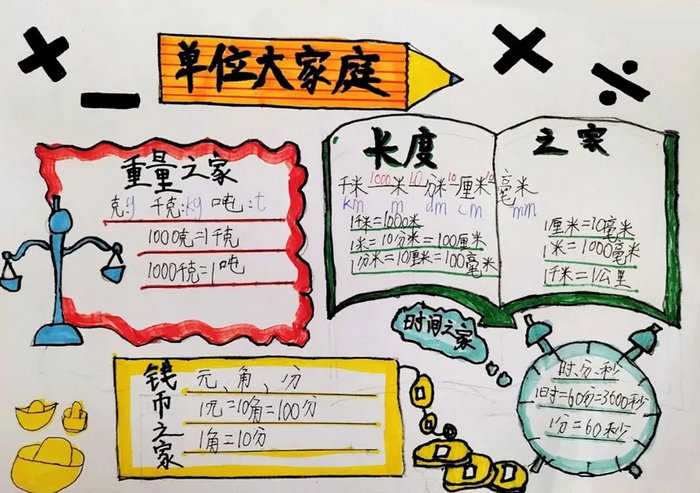 单位大家庭
重量之家
克:g 千克:kg 吨:t
1000克=1千克
1000千克=1吨
长度之家
千米 1000 米 10 分米 10 厘米 10 毫米
km m dm cm mm
1千米=1000米
1米=10分米=100厘米
1分米=10厘米=100毫米
1厘米=10毫米
1米=1000毫米
1千米=1公里
时间之家
时、分、秒
1时=60分=3600秒
1分=60秒
钱币之家
元、角、分
1元=10角=100分
1角=10分